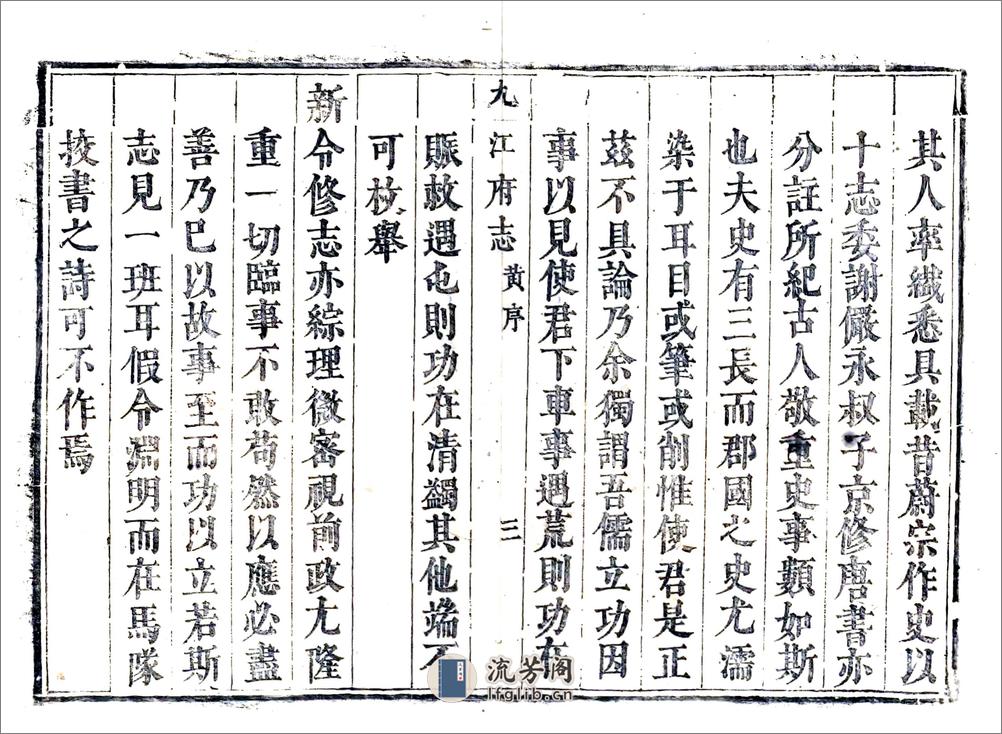 其人率纎悉具載昔蔚宗作史以
十志委謝儼永叔子京修唐書亦
分註所紀古人敬重史事類如斯
也夫史有三長而郡國之史尤濡
染于耳目或筆或削惟使君是正
茲不具論乃余獨謂吾儒立功因
事以見使君下車事遇荒則功在
九江府志 黃序 三
賑救遇屯則功在清蠲其他端不
可枚舉
新令修志亦綜理微密視前政尢隆
重一切臨事不敢苟然以應必盡
善乃巳以故事至而功以立若斯
志見一班耳假令淵明而在馬隊
挍書之詩可不作焉
流芳阁
lfglib.cn